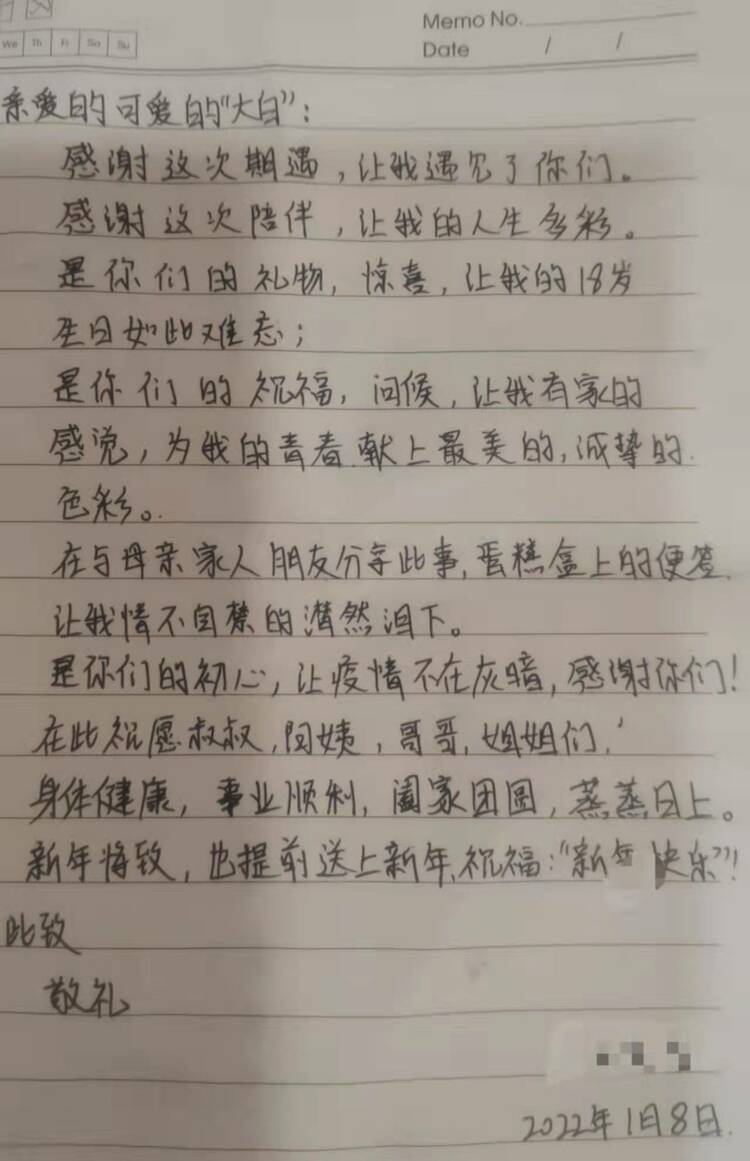 Memo No.
We Th Fr Sa Su
Date / /
亲爱的可爱的“大白”：
感谢这次期遇，让我遇见了你们。
感谢这次陪伴，让我的人生多彩。
是你们的礼物，惊喜，让我的18岁
生日如此难忘；
是你们的祝福，问候，让我有家的
感觉，为我的青春献上最美的，诚挚的
色彩。
在与母亲家人朋友分享此事，蛋糕盒上的便签
让我情不自禁的潸然泪下。
是你们的初心，让疫情不在灰暗，感谢你们！
在此祝愿叔叔，阿姨，哥哥，姐姐们，
身体健康，事业顺利，阖家团圆，蒸蒸日上。
新年将致，也提前送上新年祝福：“新年快乐”！
此致
敬礼
2022年1月8日.